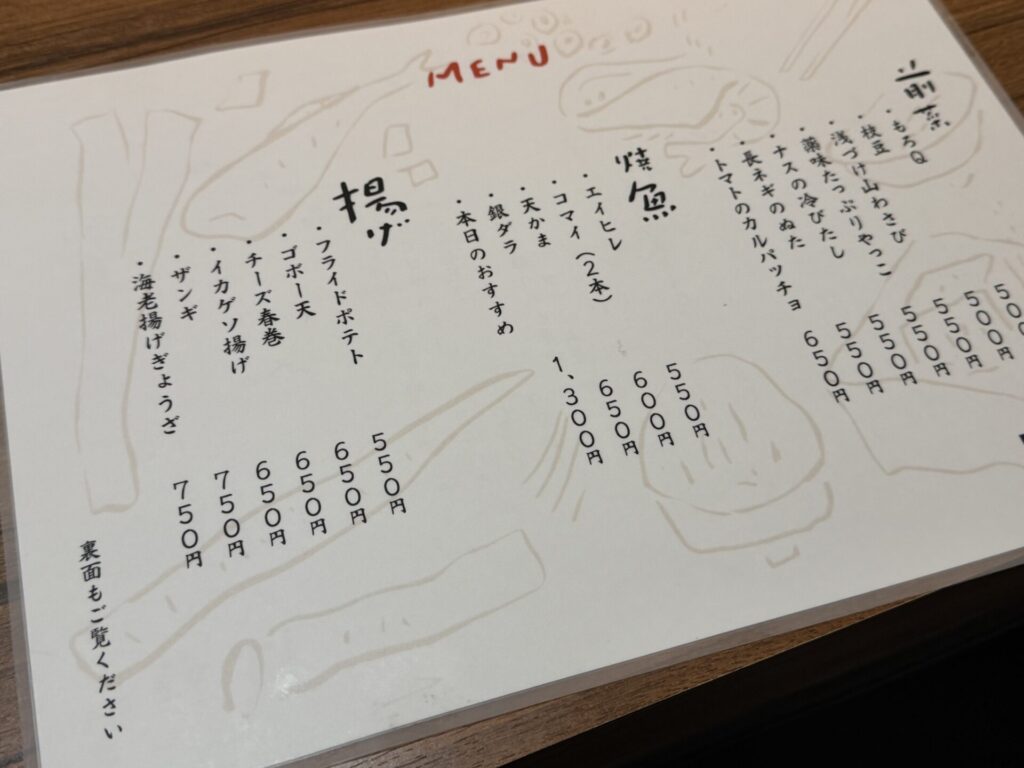 MENU
前菜
・もろQ
・枝豆
・浅づけ山わさび
・薬味たっぷりやっこ
・ナスの冷びたし
・長ネギのぬた
・トマトのカルパッチョ
500
500円
550円
550円
550円
550円
650円
焼魚
・エイヒレ
・コマイ(2本)
・天かま
・銀ダラ
・本日のおすすめ
550円
600円
650円
1、300円
揚げ
・フライドポテト
・ゴボー天
・チーズ春巻
・イカゲソ揚げ
・ザンギ
・海老揚げぎょうざ
550円
650円
650円
650円
750円
750円
裏面もご覧ください